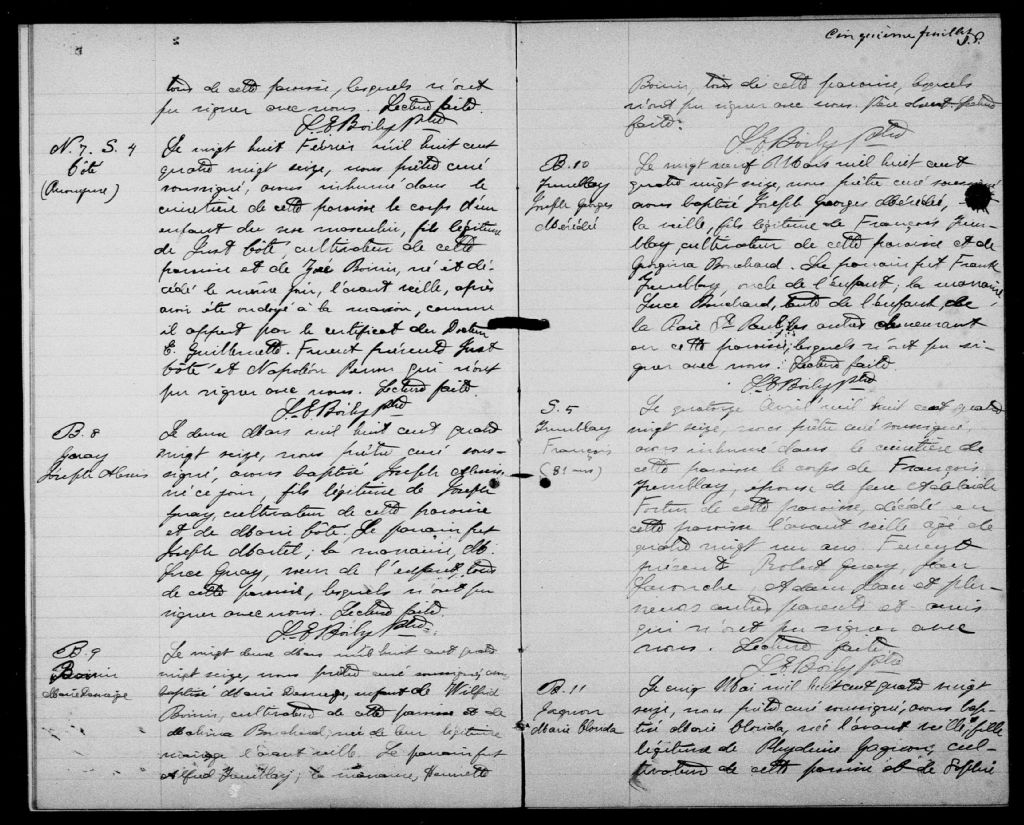 tous de cette paroisse, lesquels n'ont
pu signer avec nous. Lecture faite.
L. E. Boily Ptre
N. 7. S. 4
Côté
(Anonyme)
Le vingt huit Février mil huit cent
quatre vingt seize, nous prêtre curé
soussigné, avons inhumé dans le
cimetière de cette paroisse le corps d'un
enfant du sexe masculin, fils légitime
de Just Côté, cultivateur de cette
paroisse et de Boivin, né et dé-
cédé le même jour, l'avant veille, après
avoir été ondoyé à la maison, comme
il appert par le certificat du Docteur
E. Guillemette. Furent présents Just
Côté et Napoléon qui n'ont
pu signer avec nous. Lecture faite.
L. E. Boily Ptre
B. 8
Guay
Joseph
Le deux Mars mil huit cent quatre
vingt seize, nous prêtre curé sous-
signé, avons baptisé Joseph
né ce jour, fils légitime de Joseph
Guay, cultivateur de cette paroisse
et de Marie Côté. Le parrain fut
Joseph Martel; la marraine, M.
Luce Guay, soeur de l'enfant, tous
de cette paroisse, lesquels n'ont pu
signer avec nous. Lecture faite.
L. E. Boily Ptre
B. 9
Boivin
Marie
Le vingt deux Mars mil huit cent quatre
vingt seize, nous prêtre curé soussigné, avons
baptisé Marie enfant de Wilfrid
Boivin, cultivateur de cette paroisse et de
Malvina Bouchard, née de leur légitime
mariage l'avant veille. Le parrain fut
Alfred Tremblay; la marraine, Henriette
Cinquième feuillet
Boivin, tous de cette paroisse, lesquels
n'ont pu signer avec nous. Lecture
faite.
L. E. Boily Ptre
B. 10
Tremblay
Joseph Georges
Médéric
Le vingt neuf Mars mil huit cent
quatre vingt seize, nous prêtre curé soussigné
avons baptisé Joseph Georges Médéric, né
la veille, fils légitime de François Trem-
blay, cultivateur de cette paroisse et de
Georgina Bouchard. Le parrain fut Frank
Tremblay, oncle de l'enfant; la marraine,
Luce Bouchard, tante de l'enfant, de
la Baie St Paul, les autres demeurant
en cette paroisse, lesquels n'ont pu si-
gner avec nous. Lecture faite.
L. E. Boily Ptre
S. 5
Tremblay
François
(81 ans)
Le quatorze Avril mil huit cent quatre
vingt seize, nous prêtre curé soussigné,
avons inhumé dans le cimetière de
cette paroisse le corps de François
Tremblay, époux de feue Adelaide
Fortin de cette paroisse, décédé en
cette paroisse l'avant veille agé de
quatre vingt un ans. Furent
présents Robert Guay, Jean
Lavouche, Adam Jean et plu-
sieurs autres parents et amis
qui n'ont pu signer avec
nous. Lecture faite.
L. E. Boily Ptre
B. 11
Gagnon
Marie Olevida
Le cinq Mai mil huit cent quatre vingt
seize, nous prêtre curé soussigné, avons bap-
tisé Marie Olevida, née l'avant veille, fille
légitime de Gagnon, cul-
tivateur de cette paroisse et de Sophie